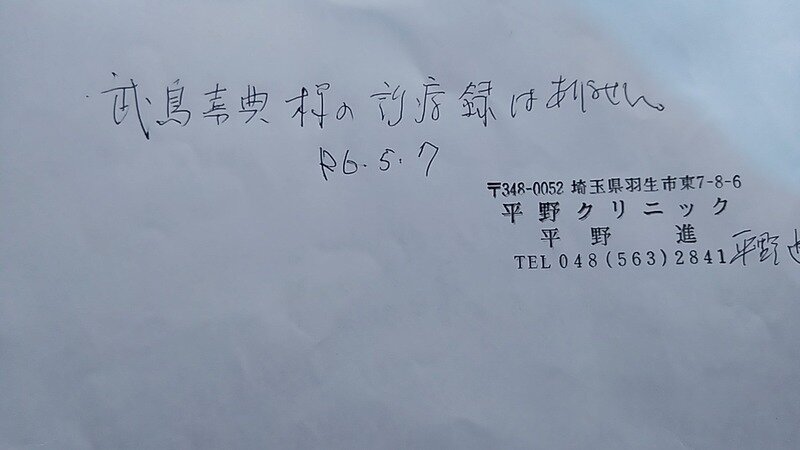 武鳥喜典様の診療録はありません。
R6.5.7
〒348-0052 埼玉県羽生市東7-8-6
平野クリニック
平野 進
TEL 048(563)2841 平野